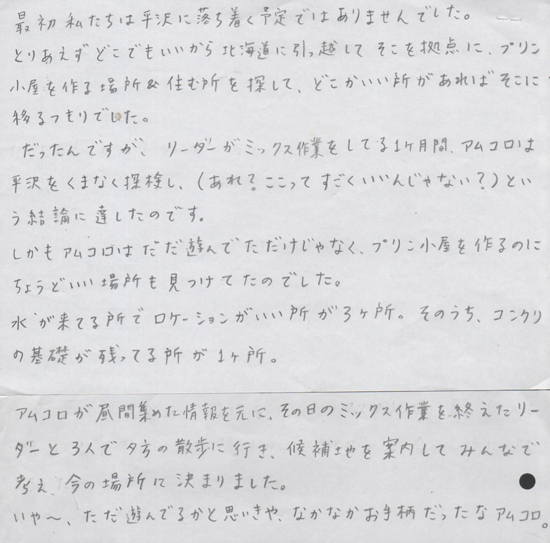 最初 私たちは平沢に落ち着く予定ではありませんでした。
とりあえずどこでもいいから北海道に引っ越して そこを拠点に、プリン
小屋を作る場所&住む所を探して、どこかいい所があればそこに
移るつもりでした。
だったんですが、リーダーがミックス作業をしてる1ヶ月間、アムコロは
平沢をくまなく探検し、(あれ?ここってすごくいいんじゃない?)とい
う結論に達したのです。
しかもアムコロはただ遊んでただけじゃなく、プリン小屋を作るのに
ちょうどいい場所も見つけてたのでした。
水が来てる所でロケーションがいい所が3ヶ所。そのうち、コンクリ
の基礎が残ってる所が1ヶ所。
アムコロが昼間集めた情報を元に、その日のミックス作業を終えたリー
ダーと3人で夕方の散歩に行き、候補地を案内してみんなで
考え、今の場所に決まりました。
いや〜、ただ遊んでるかと思いきや、なかなかお手柄だったなアムコロ。